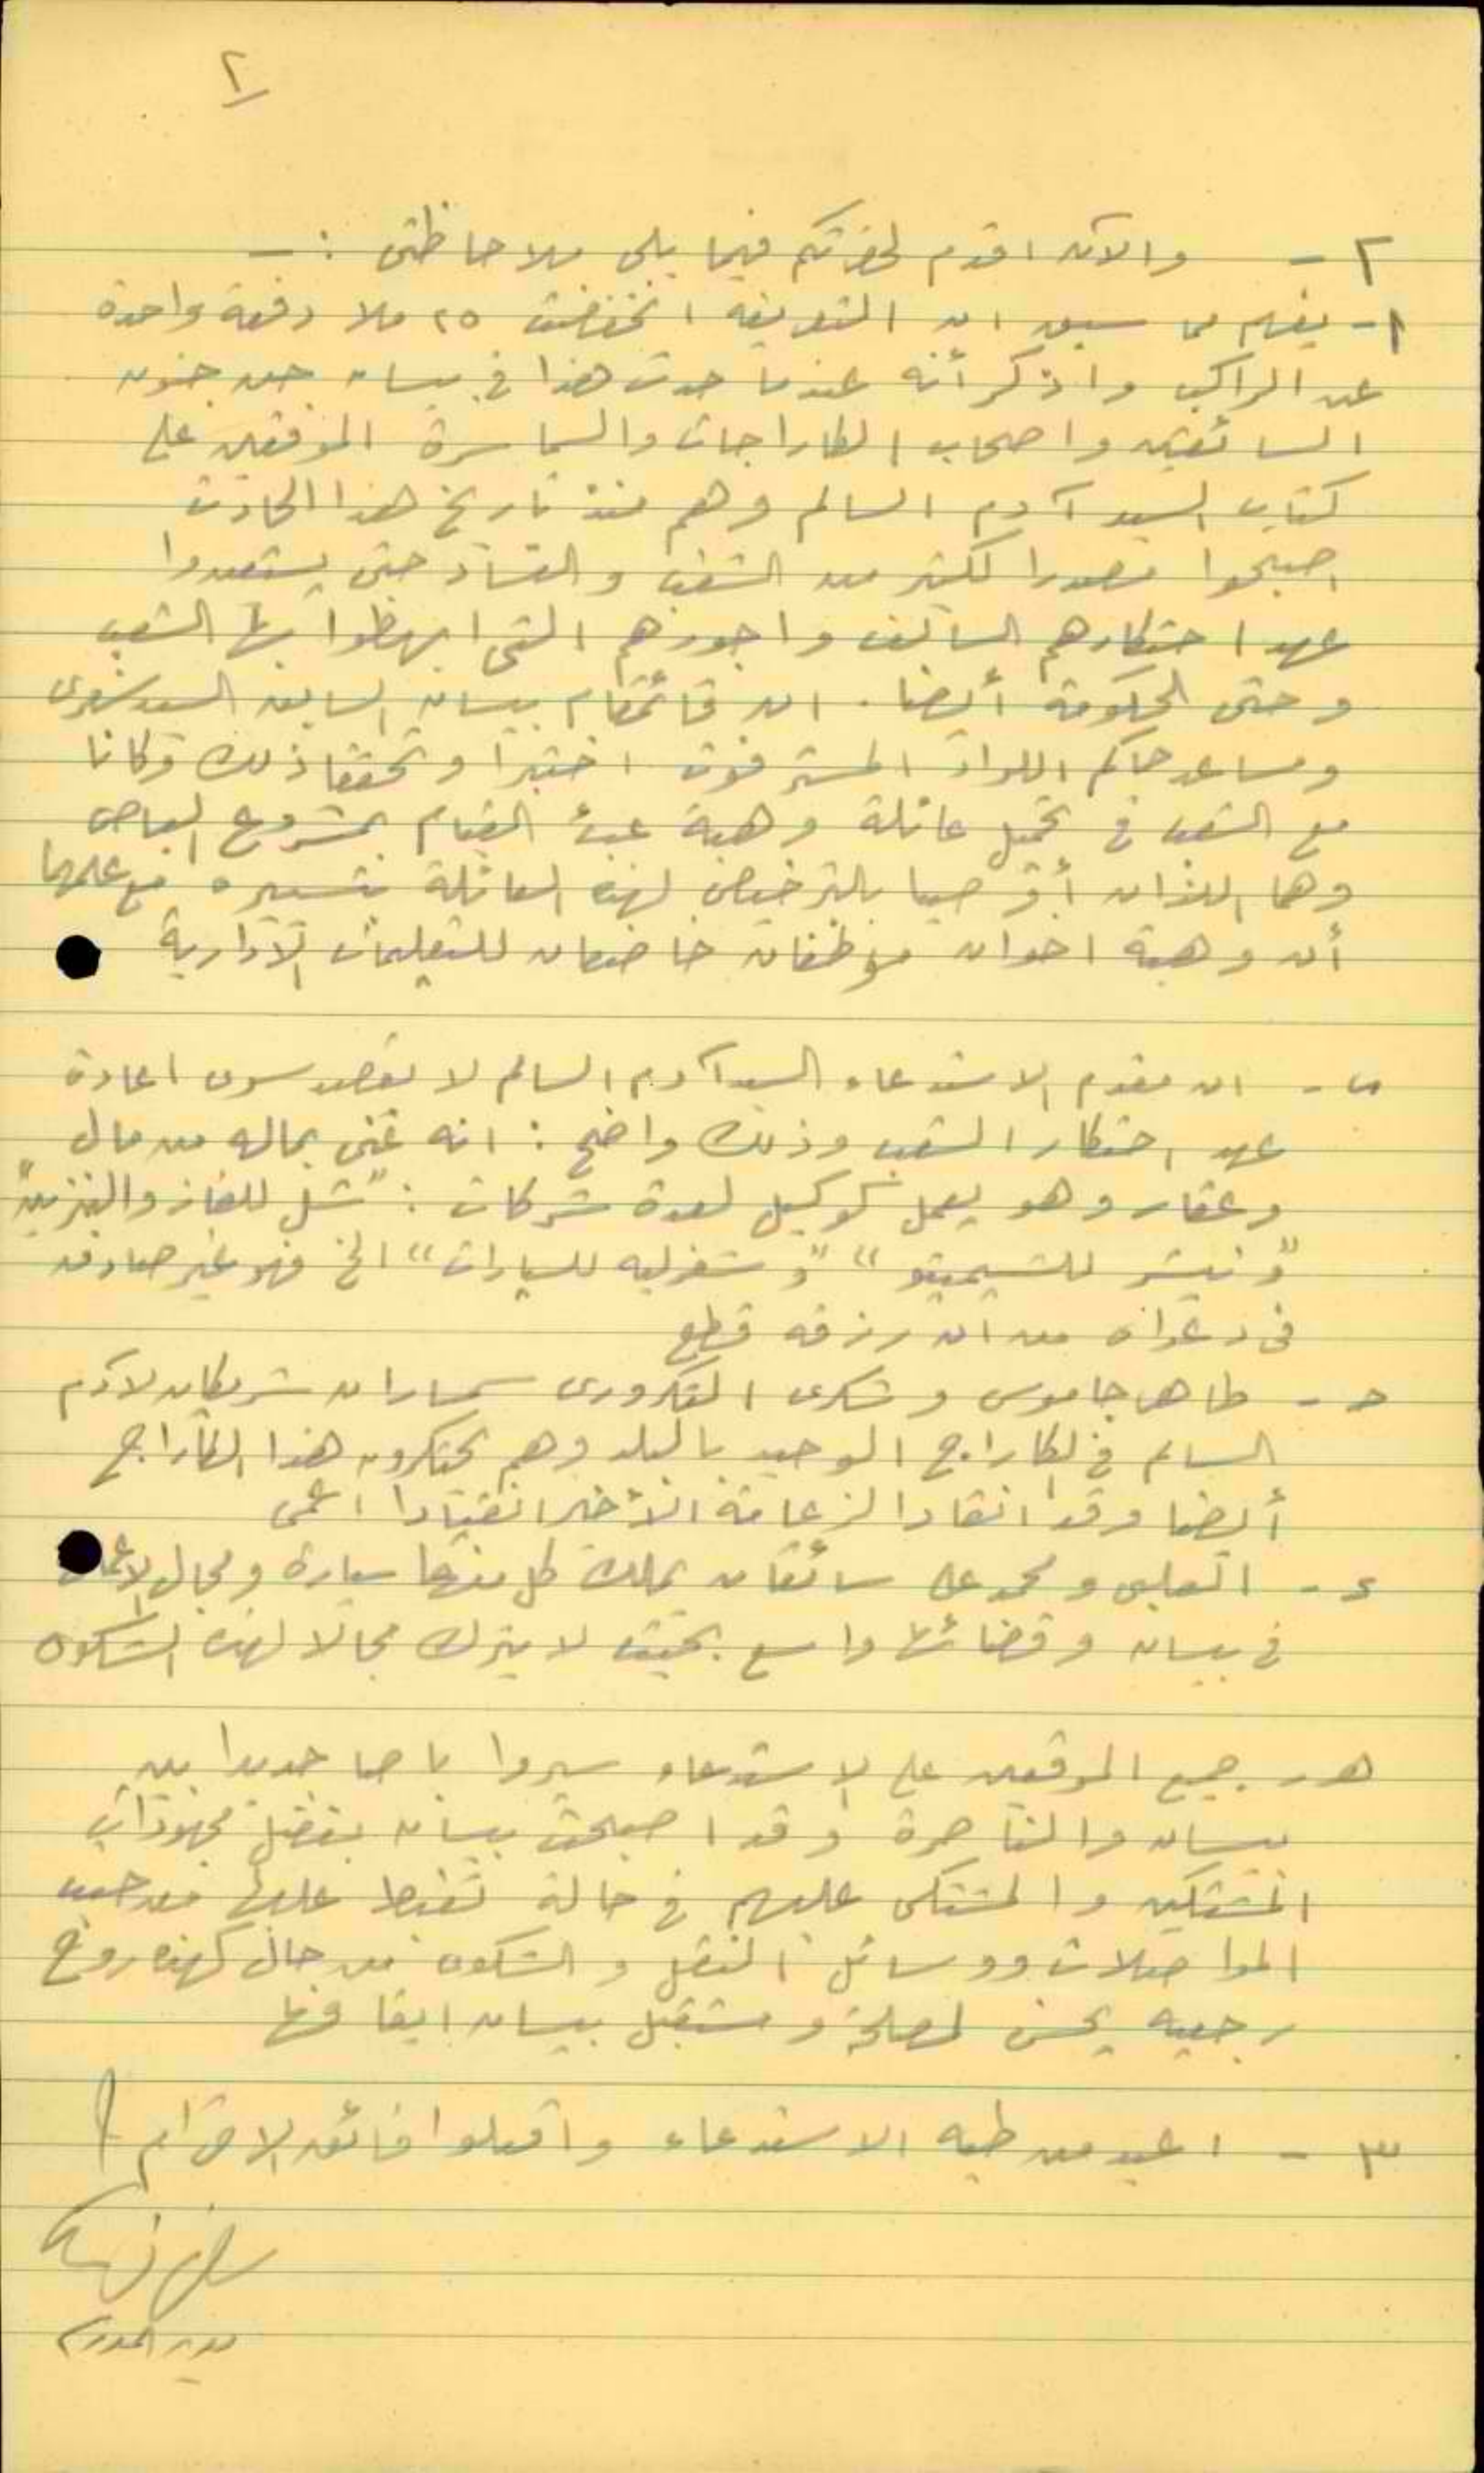 ٢
٢ - والآن اقدم لحضرتكم فيما يلي ملاحظتي : -
١- يفهم مما سبق ان التعريفه انخفضت ٢٥ ملا دفعة واحدة
عن الراكب واذكر أنه عندما حدث هذا في بيسان جن جنون
السائقين واصحاب الكاراجات والسماسرة الموقعين على
كتاب السيد آدم السالم وهم منذ تاريخ هذا الحادث
اصبحوا مصدرا لكثير من الشغب والفساد حتى يستعيدوا
عهد احتكارهم السالف واجورهم التي ابهظوا بها الشعب
وحتى الحكومة أيضا . ان قائمقام بيسان السابق السيد
ومساعد حاكم اللواء المستر فوت اختبرا وتحققا ذلك وكانا
مع الشعب في تحميل عائلة وهبة عبء القيام بمشروع الباص
وهما اللذان أوصيا بالترخيص لهذه العائلة بتسييره مع علمهما
أن وهبة اخوان موظفان خاضعان للتعليمات الادارية
ب - ان مقدم الاستدعاء السيد آدم السالم لا يقصد سوى اعادة
عهد احتكار الشعب وذلك واضح : انه غني بماله من مال
وعقار وهو يعمل كوكيل لعدة شركات : "شل للغاز والبنزين"
"ونيشر للشيميتو" "وشفرليه للسيارات" الخ فهو غير صادق
في دعواه من ان رزقه قطع
ج - طاهر جاموس وشكري التكروري سمساران شريكان لآدم
السالم في الكاراج الوحيد بالبلد وهم يحتكرون هذا الكاراج
أيضا وقد انقادا لزعامة الأخير انقيادا اعمى
د - العلبي ومحمد علي سائقان يملك كل منهما سيارة ومجال الاعمال
في بيسان وقضائها واسع بحيث لا يترك مجالا لهذه الشكوى
هـ - جميع الموقعين على الاستدعاء سيروا باصا جديدا بين
بيسان والناصرة وقد اصبحت بيسان بفضل مجهودات
المشتكين والمشتكى عليهم في حالة تغبط عليها من حيث
المواصلات ووسائل النقل والشكوى من حال كهذه روح
رجعيه يحسن لمصلحة ومستقبل بيسان ايقافها
٣ - اعيد من طيه الاستدعاء واقبلوا فائق الاحترام
مدير المدرسة